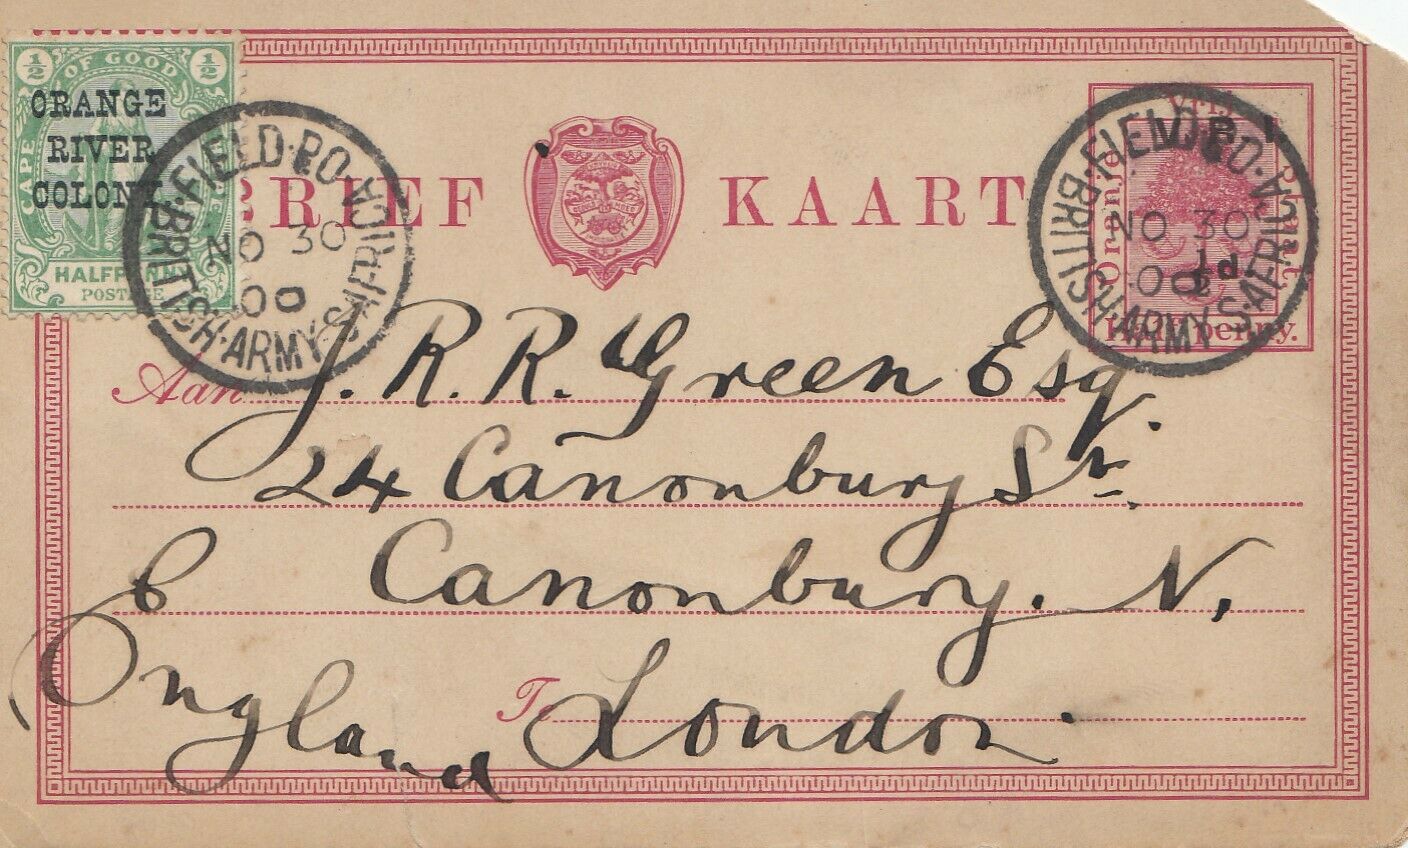 ½ OF GOOD ½
CAPE
ORANGE
RIVER
COLONY.
HALFPENNY
POSTAGE
FIELD·P.O.
BRITISH·ARMY·S·AFRICA
NO 30
00
BRIEF KAART
Oranje Vrij Staat.
V R
½d
Half penny.
FIELD·P.O.
BRITISH·ARMY·S·AFRICA
NO 30
00
Aan J. R. R. Green Esq.
24 Canonbury Sr.
Canonbury. N.
Te London
England